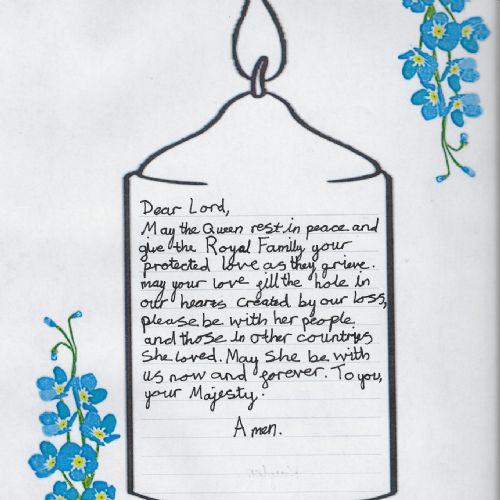 Dear Lord,
May the Queen rest in peace and
give the Royal Family your
protected love as they grieve.
may your love fill the hole in
our hearts created by our loss,
please be with her people
and those in other countries
she loved. May She be with
us now and forever. To you,
your Majesty.
Amen.